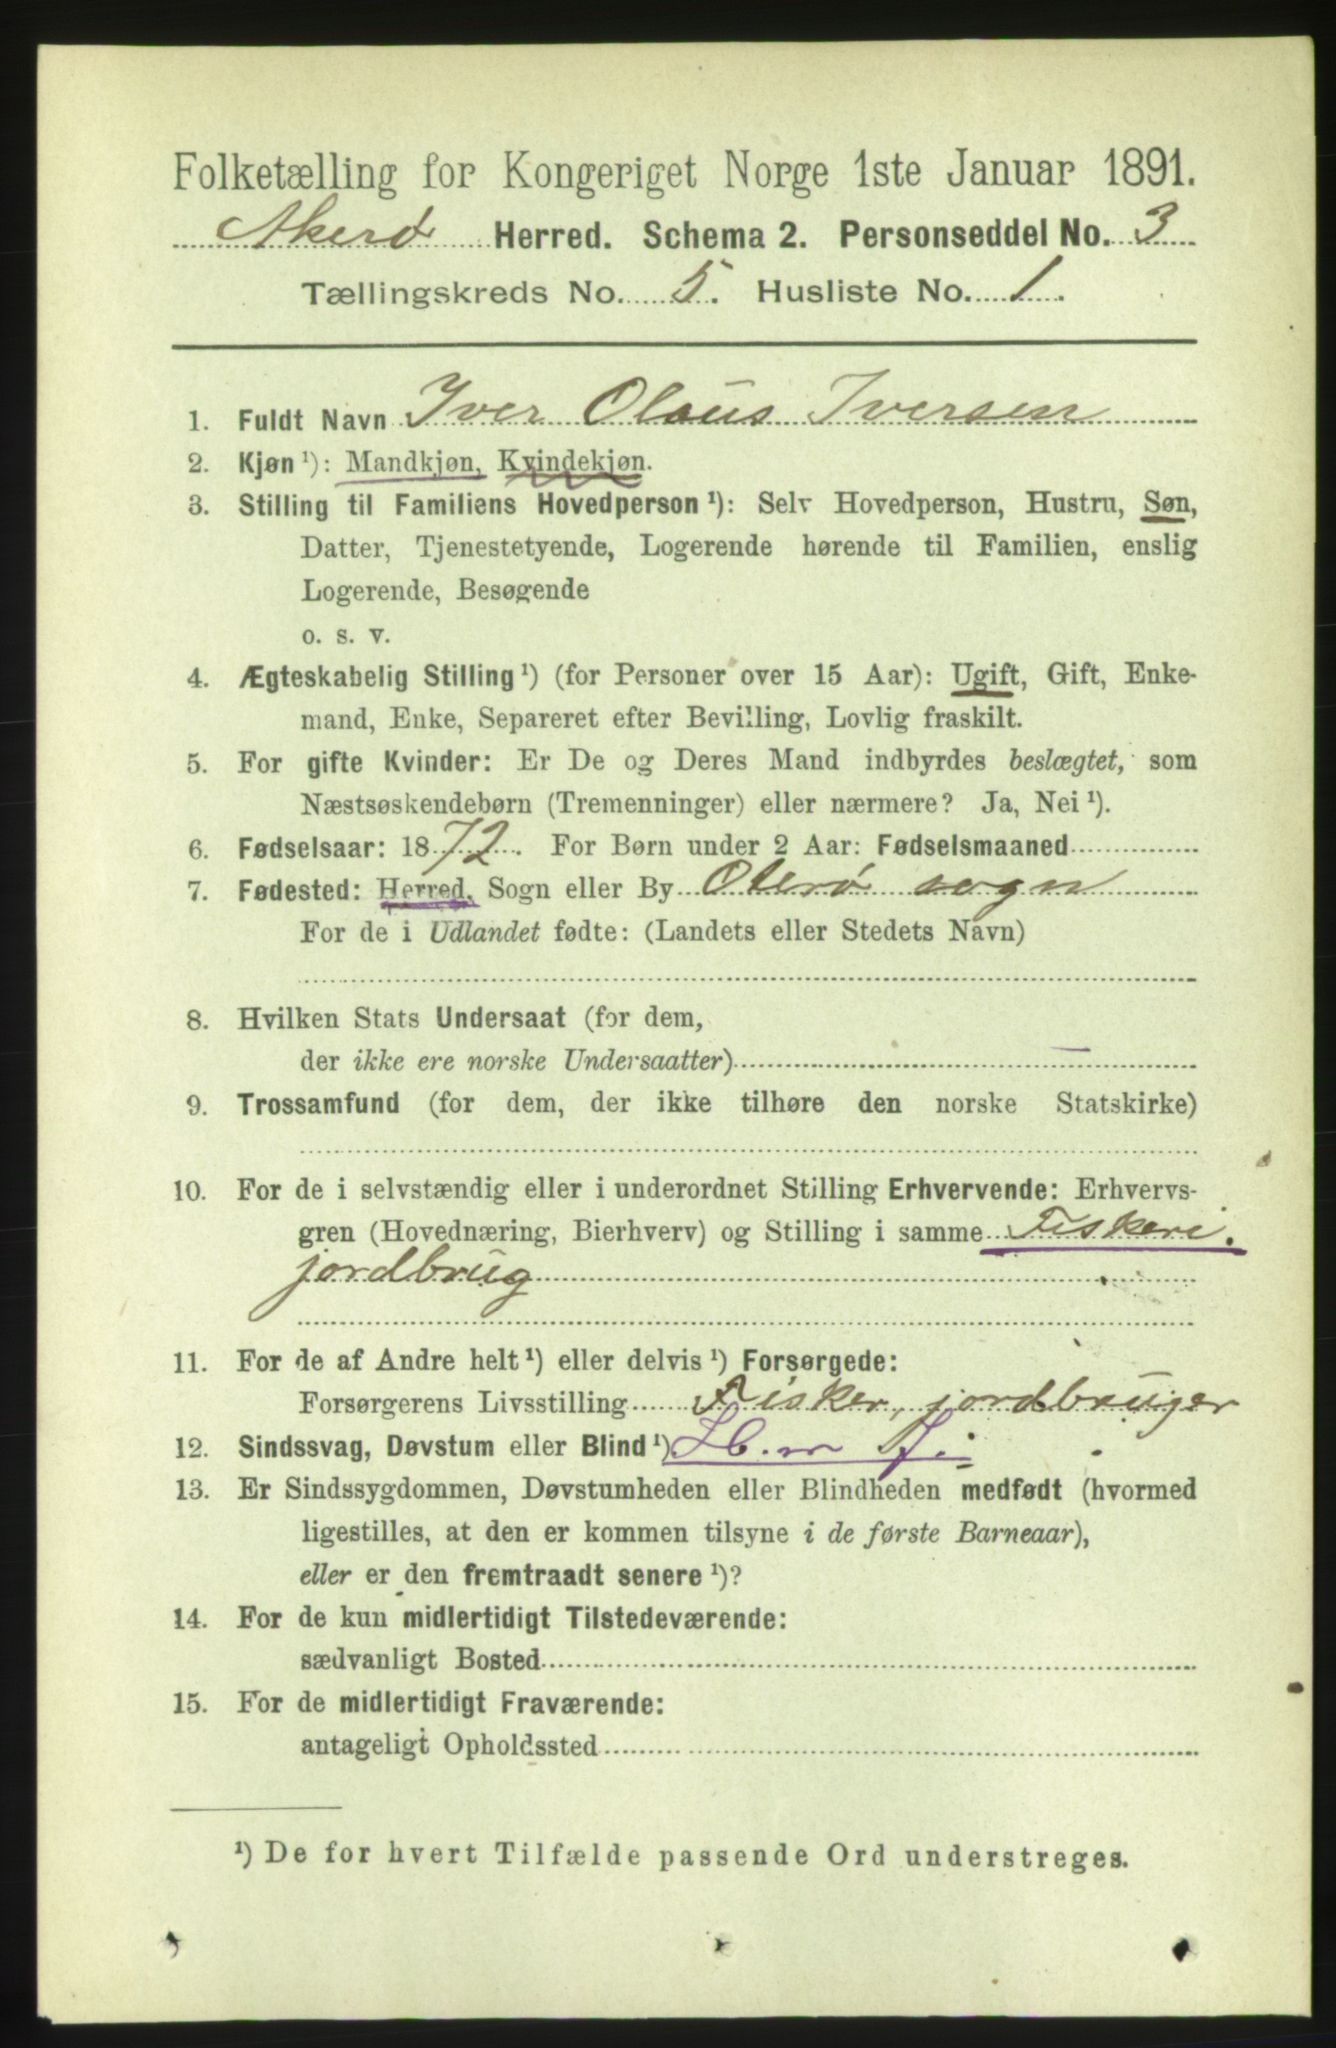 Folketælling for Kongeriget Norge 1ste Januar 1891.
Akerø Herred. Schema 2. Personseddel No. 3
Tællingskreds No. 5. Husliste No. 1.
1. Fuldt Navn Iver Olaus Iversen
2. Kjøn ¹): Mandkjøn, Kvindekjøn.
3. Stilling til Familiens Hovedperson ¹): Selv Hovedperson, Hustru, Søn,
Datter, Tjenestetyende, Logerende hørende til Familien, enslig
Logerende, Besøgende
o. s. v.
4. Ægteskabelig Stilling ¹) (for Personer over 15 Aar): Ugift, Gift, Enke-
mand, Enke, Separeret efter Bevilling, Lovlig fraskilt.
5. For gifte Kvinder: Er De og Deres Mand indbyrdes beslægtet, som
Næstsøskendebørn (Tremenninger) eller nærmere? Ja, Nei ¹).
6. Fødselsaar: 1872. For Børn under 2 Aar: Fødselsmaaned
7. Fødested: Herred, Sogn eller By sogn
For de i Udlandet fødte: (Landets eller Stedets Navn)
8. Hvilken Stats Undersaat (for dem,
der ikke ere norske Undersaatter) —
9. Trossamfund (for dem, der ikke tilhøre den norske Statskirke)
10. For de i selvstændig eller i underordnet Stilling Erhvervende: Erhvervs-
gren (Hovednæring, Bierhverv) og Stilling i samme Fiskeri.
jordbrug
11. For de af Andre helt ¹) eller delvis ¹) Forsørgede:
Forsørgerens Livsstilling Fisker, jordbruger
12. Sindssvag, Døvstum eller Blind ¹).
13. Er Sindssygdommen, Døvstumheden eller Blindheden medfødt (hvormed
ligestilles, at den er kommen tilsyne i de første Barneaar),
eller er den fremtraadt senere ¹)?
14. For de kun midlertidigt Tilstedeværende:
sædvanligt Bosted
15. For de midlertidigt Fraværende:
antageligt Opholdssted
¹) De for hvert Tilfælde passende Ord understreges.